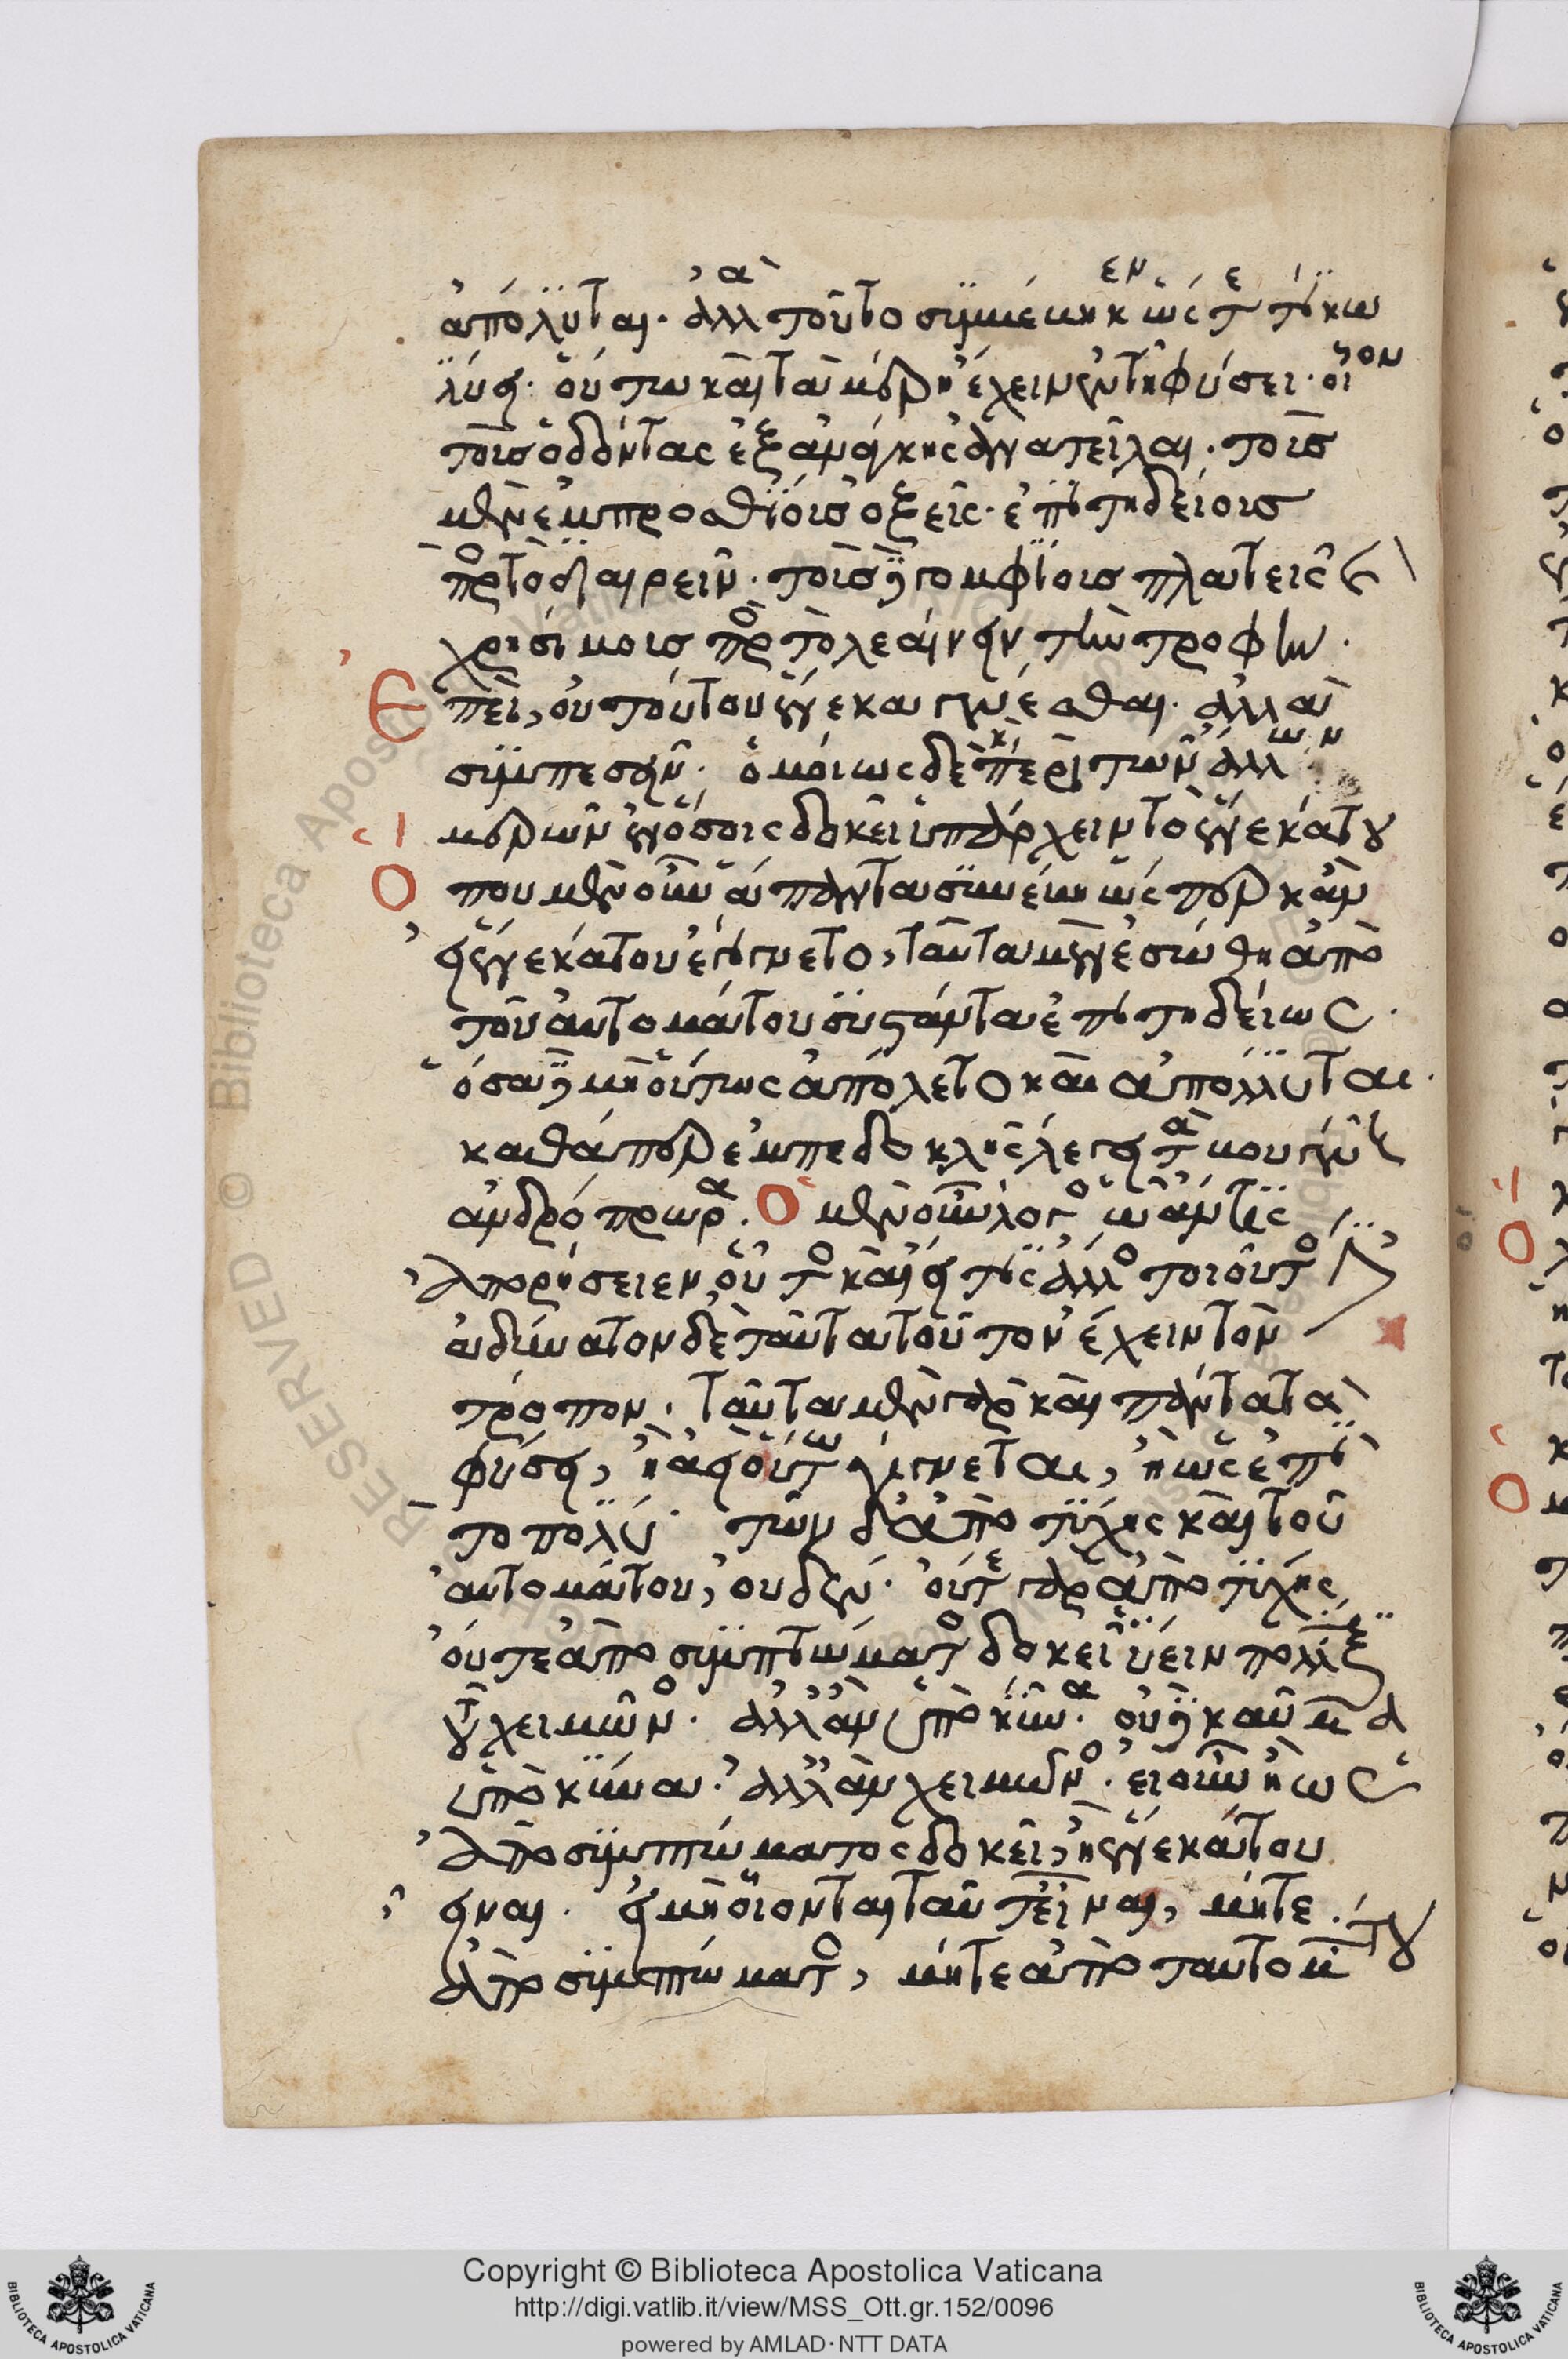 ἀπόλυται· ἀλλὰ τοῦτο συμβέβηκεν ὥστε τί κω
λύει οὕτω καὶ τὰ μέρη ἔχειν ἐν τῆ φύσει· οἷον
τοὺς ὀδόντας ἐξ ἀνάγκης ἀνατεῖλαι· τοὺς
μὲν ἐμπροσθίους ὀξεῖς· ἐπιτηδείους
πρὸς τὸ διαιρεῖν· τοὺς δὲ γομφίους πλατεῖς καὶ
χρησίμους πρὸς τὸ λεαίνειν τὴν τροφήν·
Ἐπεὶ, οὐ τούτου ἕνεκα γενέσθαι· ἀλλὰ
συμπεσεῖν· ὁμοίως δὲ καὶ περὶ τῶν ἄλλων
μερῶν ἐν ὅσοις δοκεῖ ὑπάρχειν τὸ ἕνεκά του
Ὅπου μὲν οὖν ἅπαντα συνέβη ὥσπερ κἂν
εἰ ἕνεκά του ἐγίγνετο, ταῦτα μὲν ἐσώθη ἀπὸ
τοῦ αὐτομάτου συστάντα ἐπιτηδείως·
ὅσα δὲ μὴ οὕτως ἀπόλετο καὶ ἀπόλλυται·
καθάπερ ἐμπεδοκλῆς λέγει τὰ βουγενῆ καὶ
ἀνδρόπρωρα· Ὁ μὲν οὖν λόγος ὧ ἄν τις
ἀπορήσειεν, οὗτος καὶ εἴ τις ἄλλος τοιοῦτος
ἀδύνατον δὲ ταῦτα τοῦτον ἔχειν τὸν
τρόπον· ταῦτα μὲν γὰρ καὶ πάντα τὰ
φύσει, ἢ ἀεὶ οὕτω γίγνεται, ἢ ὡς ἐπὶ
τὸ πολύ· τῶν δ' ἀπὸ τύχης καὶ τοῦ
αὐτομάτου, οὐδέν· οὔτε γὰρ ἀπὸ τύχης
οὔτε ἀπὸ συμπτώματος δοκεῖ ὕειν πολλάκις
τοῦ χειμῶνος· ἀλλ' ἂν ὑπὸ κύνα· οὐδὲ καύματα
ὑπὸ κύνα· ἀλλ' ἂν χειμῶνος· εἰ οὖν ἢ ὡς
ἀπὸ συμπτώματος δοκεῖ, ἢ ἕνεκά του
εἶναι· εἰ μὴ οἷόν τε ταῦτ' εἶναι, μήτε
ἀπὸ συμπτώματος, μήτε ἀπὸ ταυτομάτου
Copyright © Biblioteca Apostolica Vaticana
http://digi.vatlib.it/view/MSS_Ott.gr.152/0096
powered by AMLAD·NTT DATA
BIBLIOTECA APOSTOLICA VATICANA
BIBLIOTECA APOSTOLICA VATICANA